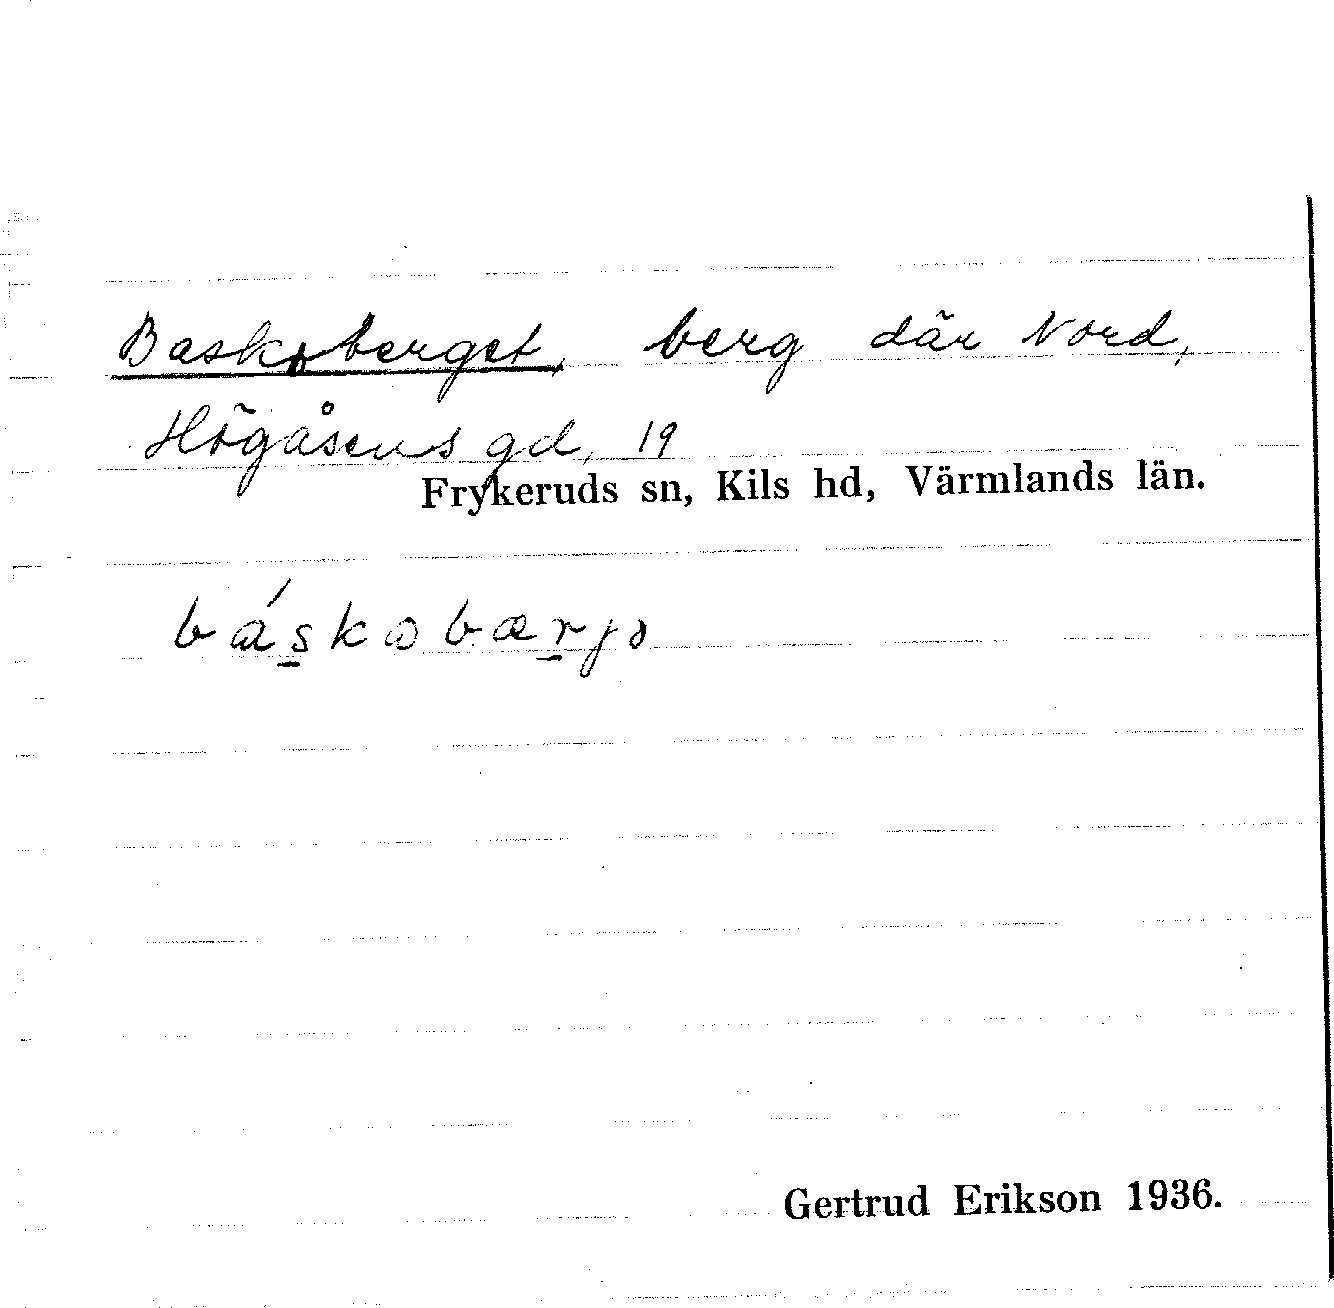 Baskoberget, berg där Nord,
Högåsens gd, 19
Frykeruds sn, Kils hd, Värmlands län.
báskobærjə
Gertrud Erikson 1936.